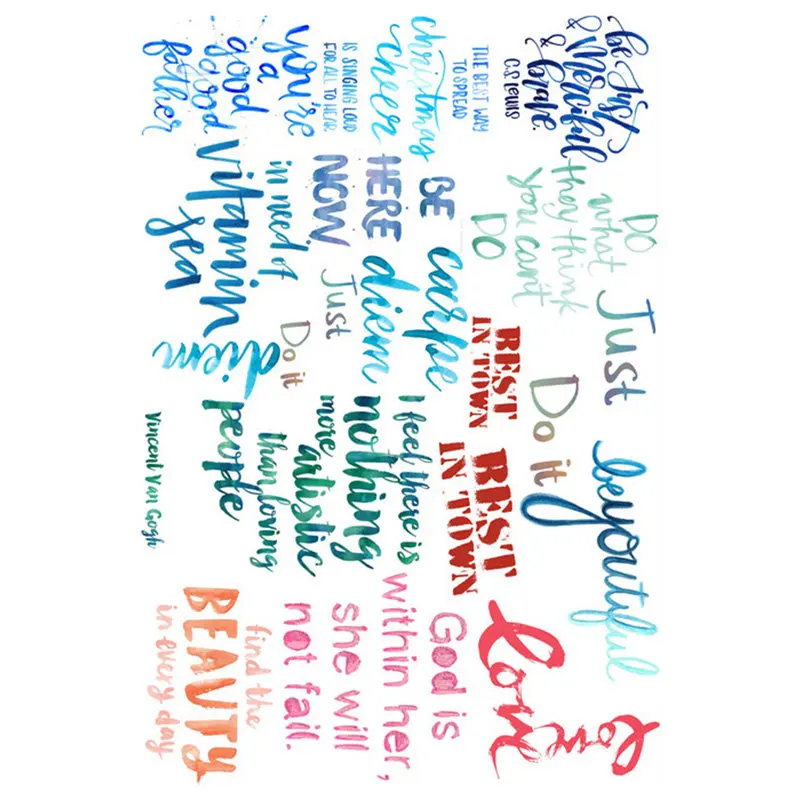 be Just
& Merciful
& brave.
CS lewis
THE BEST WAY
TO SPREAD
christmas
cheer
IS SINGING LOUD
FOR ALL TO HEAR
you're
a
good
good
father
DO
what
they think
you can't
DO
BE
HERE
NOW
in need of
vitamin
sea
Just
Do it
BEST
IN TOWN
carpe
diem
Just
Do it
diem
beyoutiful
BEST
IN TOWN
I feel there is
nothing
more
artistic
than loving
people
Vincent Van Gogh
love
love
God is
within her,
she will
not fail.
find the
BEAUTY
in every day